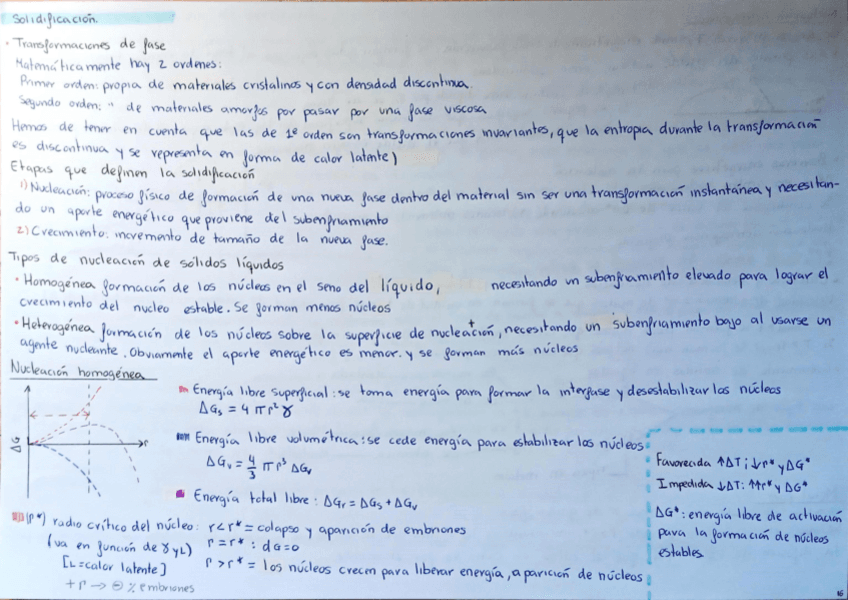 Solidificación.
· Transformaciones de fase
Matemáticamente hay 2 ordenes:
Primer orden: propia de materiales cristalinos y con densidad discontinua.
Segundo orden: " de materiales amorfos por pasar por una fase viscosa
Hemos de tener en cuenta que las de 1º orden son transformaciones invariantes, que la entropia durante la transformación
es discontinua y se representa en forma de calor latente)
Etapas que definen la solidificación
1) Nucleación: proceso físico de formación de una nueva fase dentro del material sin ser una transformación instantánea y necesitan-
do un aporte energético que proviene del subenfriamiento
2) Crecimiento: incremento de tamaño de la nueva fase.
Tipos de nucleación de sólidos líquidos
· Homogénea formación de los núcleos en el seno del líquido, necesitando un subenfriamiento elevado para lograr el
crecimiento del nucleo estable. Se forman menos núcleos
· Heterogénea formación de los núcleos sobre la superficie de nucleación, necesitando un subenfriamiento bajo al usarse un
agente nucleante. Obviamente el aporte energético es menor. y se forman más núcleos
Nucleación homogénea
ΔG
r
Energía libre superficial: se toma energía para formar la interfase y desestabilizar los núcleos
ΔGs = 4 π r² γ
Energía libre volumétrica: se cede energía para estabilizar los núcleos
ΔGv = 4/3 π r³ ΔGv
Energía total libre: ΔGr = ΔGs + ΔGv
(r*) radio crítico del núcleo: r < r* = colapso y aparición de embriones
(va en función de γ y L) r = r* : dG = 0
[L = calor latente] r > r* = los núcleos crecen para liberar energía, aparición de núcleos
+ r → ⊖ % embriones
Favorecida ↑ΔT: ↓r* y ΔG*
Impedida ↓ΔT: ↑↑r* y ΔG*
ΔG*: energía libre de activación
para la formación de núcleos
estables
16